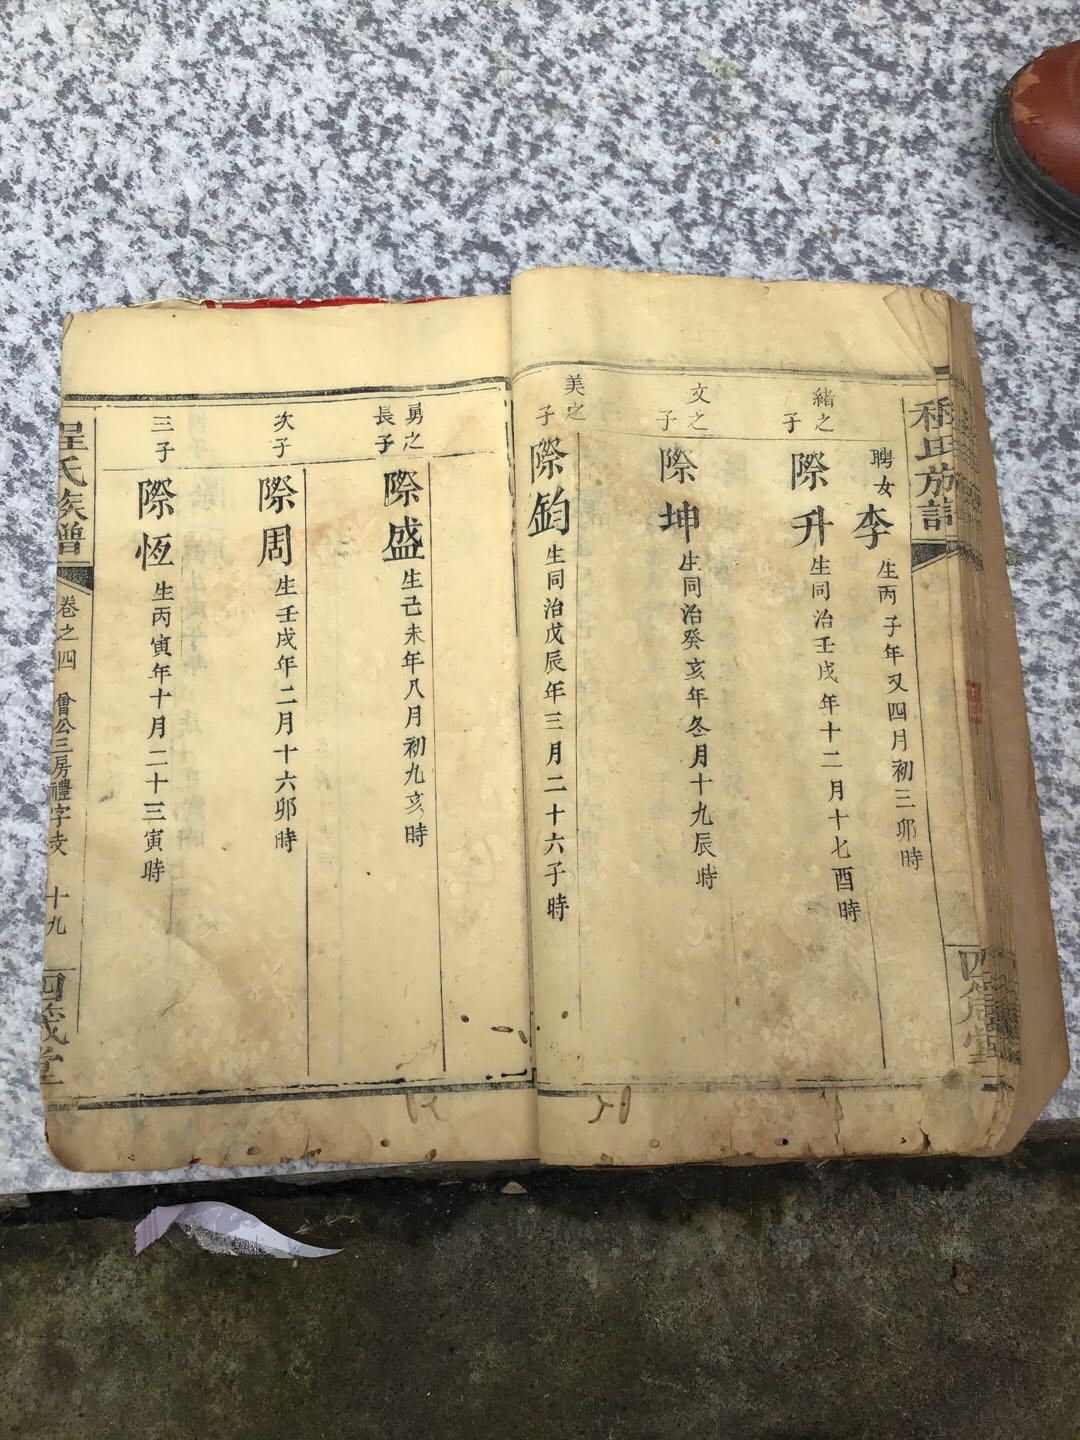 程氏族譜
四箴堂
聘女李生丙子年又四月初三卯時
緒之子
際升生同治壬戌年十二月十七酉時
文之子
際坤生同治癸亥年冬月十九辰時
美之子
際鈞生同治戊辰年三月二十六子時
勇之長子
際盛生己未年八月初九亥時
次子
際周生壬戌年二月十六卯時
三子
際恆生丙寅年十月二十三寅時
程氏族譜
卷之四
曾公三房禮字支
十九
四箴堂